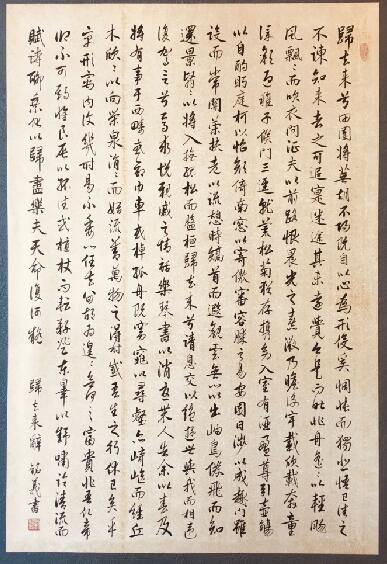 歸去來兮田園將蕪胡不歸既自以心為形役奚惆悵而獨悲悟已往之
不諫知來者之可追寔迷途其未遠覺今是而昨非舟遙遙以輕颺
風飄飄而吹衣問征夫以前路恨晨光之熹微乃瞻衡宇載欣載奔童
僕歡迎稚子候門三逕就荒松菊猶存攜幼入室有酒盈樽引壺觴
以自酌眄庭柯以怡顏倚南窗以寄傲審容膝之易安園日涉以成趣門雖
設而常關策扶老以流憩時矯首而遐觀雲無心以出岫鳥倦飛而知
還景翳翳以將入撫孤松而盤桓歸去來兮請息交以絕遊世與我而相遺
復駕言兮焉求悅親戚之情話樂琴書以消憂農人告余以春及
將有事于西疇或命巾車或棹孤舟既窈窕以尋壑亦崎嶇而經丘
木欣欣以向榮泉涓涓而始流善萬物之得時感吾生之行休已矣乎
寓形宇內復幾時曷不委心任去留胡為遑遑欲何之富貴非吾願帝
鄉不可期懷良辰以孤往或植杖而耘耔登東皋以舒嘯臨清流而
賦詩聊乘化以歸盡樂夫天命復何疑 歸去來辭 銘義書